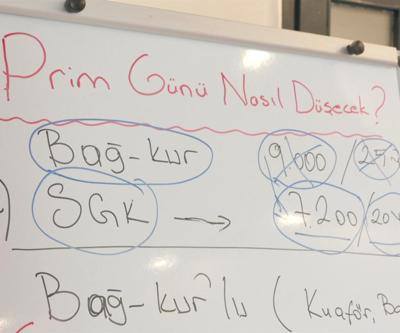 Prim Günü Nasıl Düşecek?
Bağ-kur 9.000 / 25
) SGK → 7.200 / 20
Bağ-kur'lu ( Kuaför,